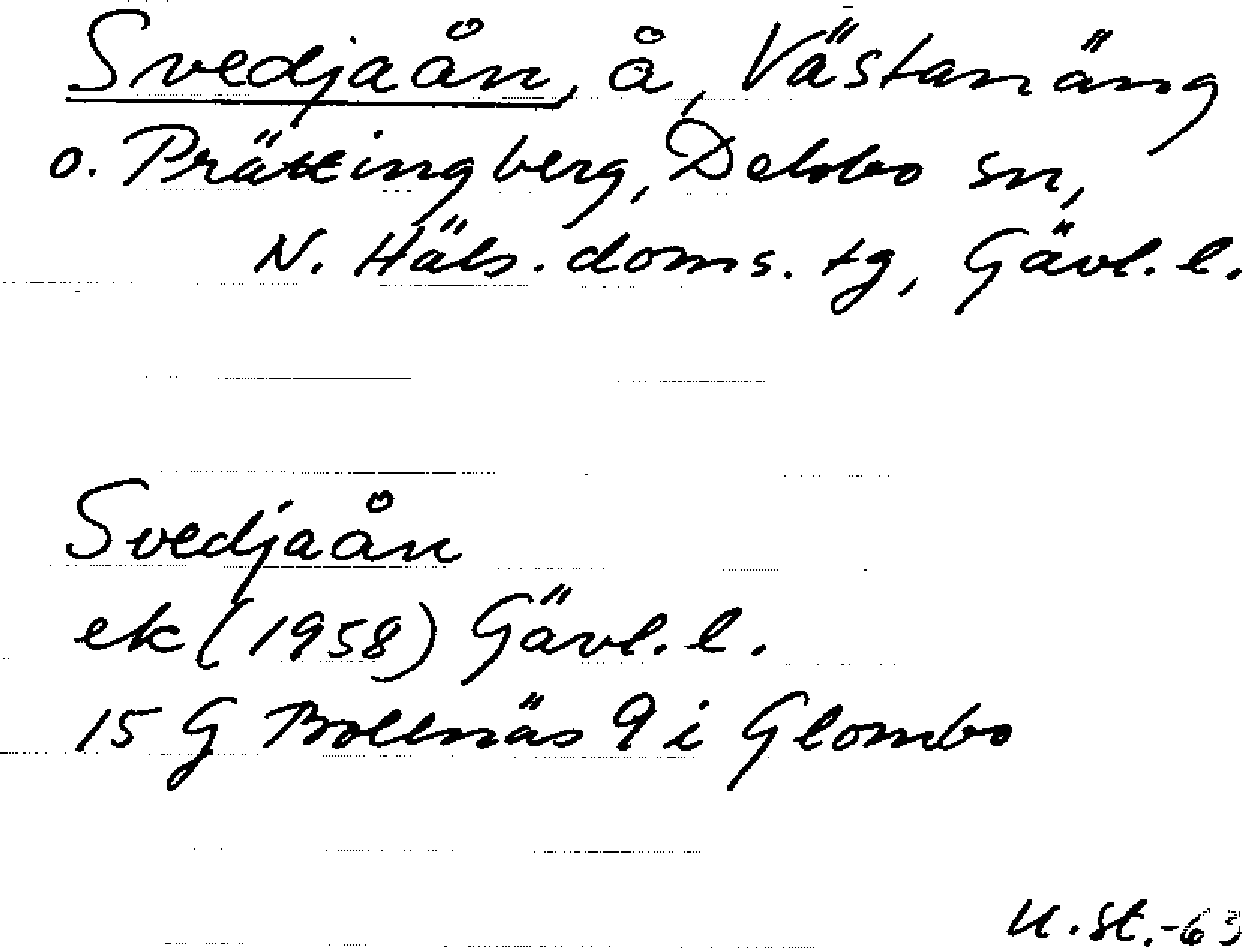 Svedjaån, å, Västanäng
o. Prästingberg, Delsbo sn,
N. Häls. doms. tg, Gävl. l.
Svedjaån
ek (1958) Gävl. l.
15 G Bollnäs 9 i Glombo
U. St. -63